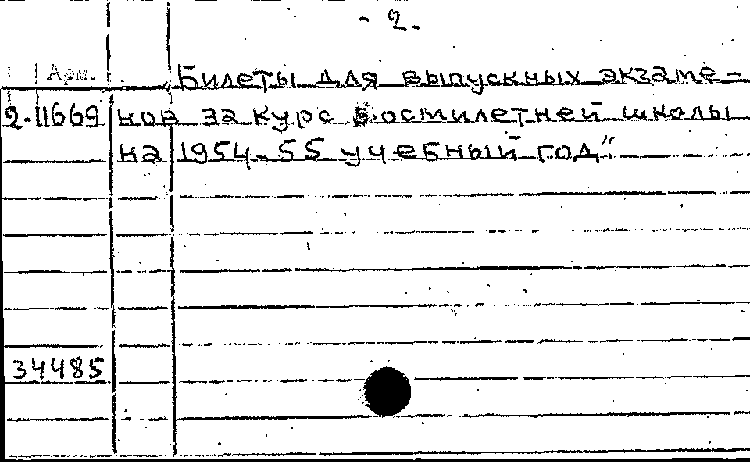 - 2.
Арм. Билеты для выпускных экзаме-
2-11669 нов за курс восмилетней школы
на 1954-55 учебный год"
34485